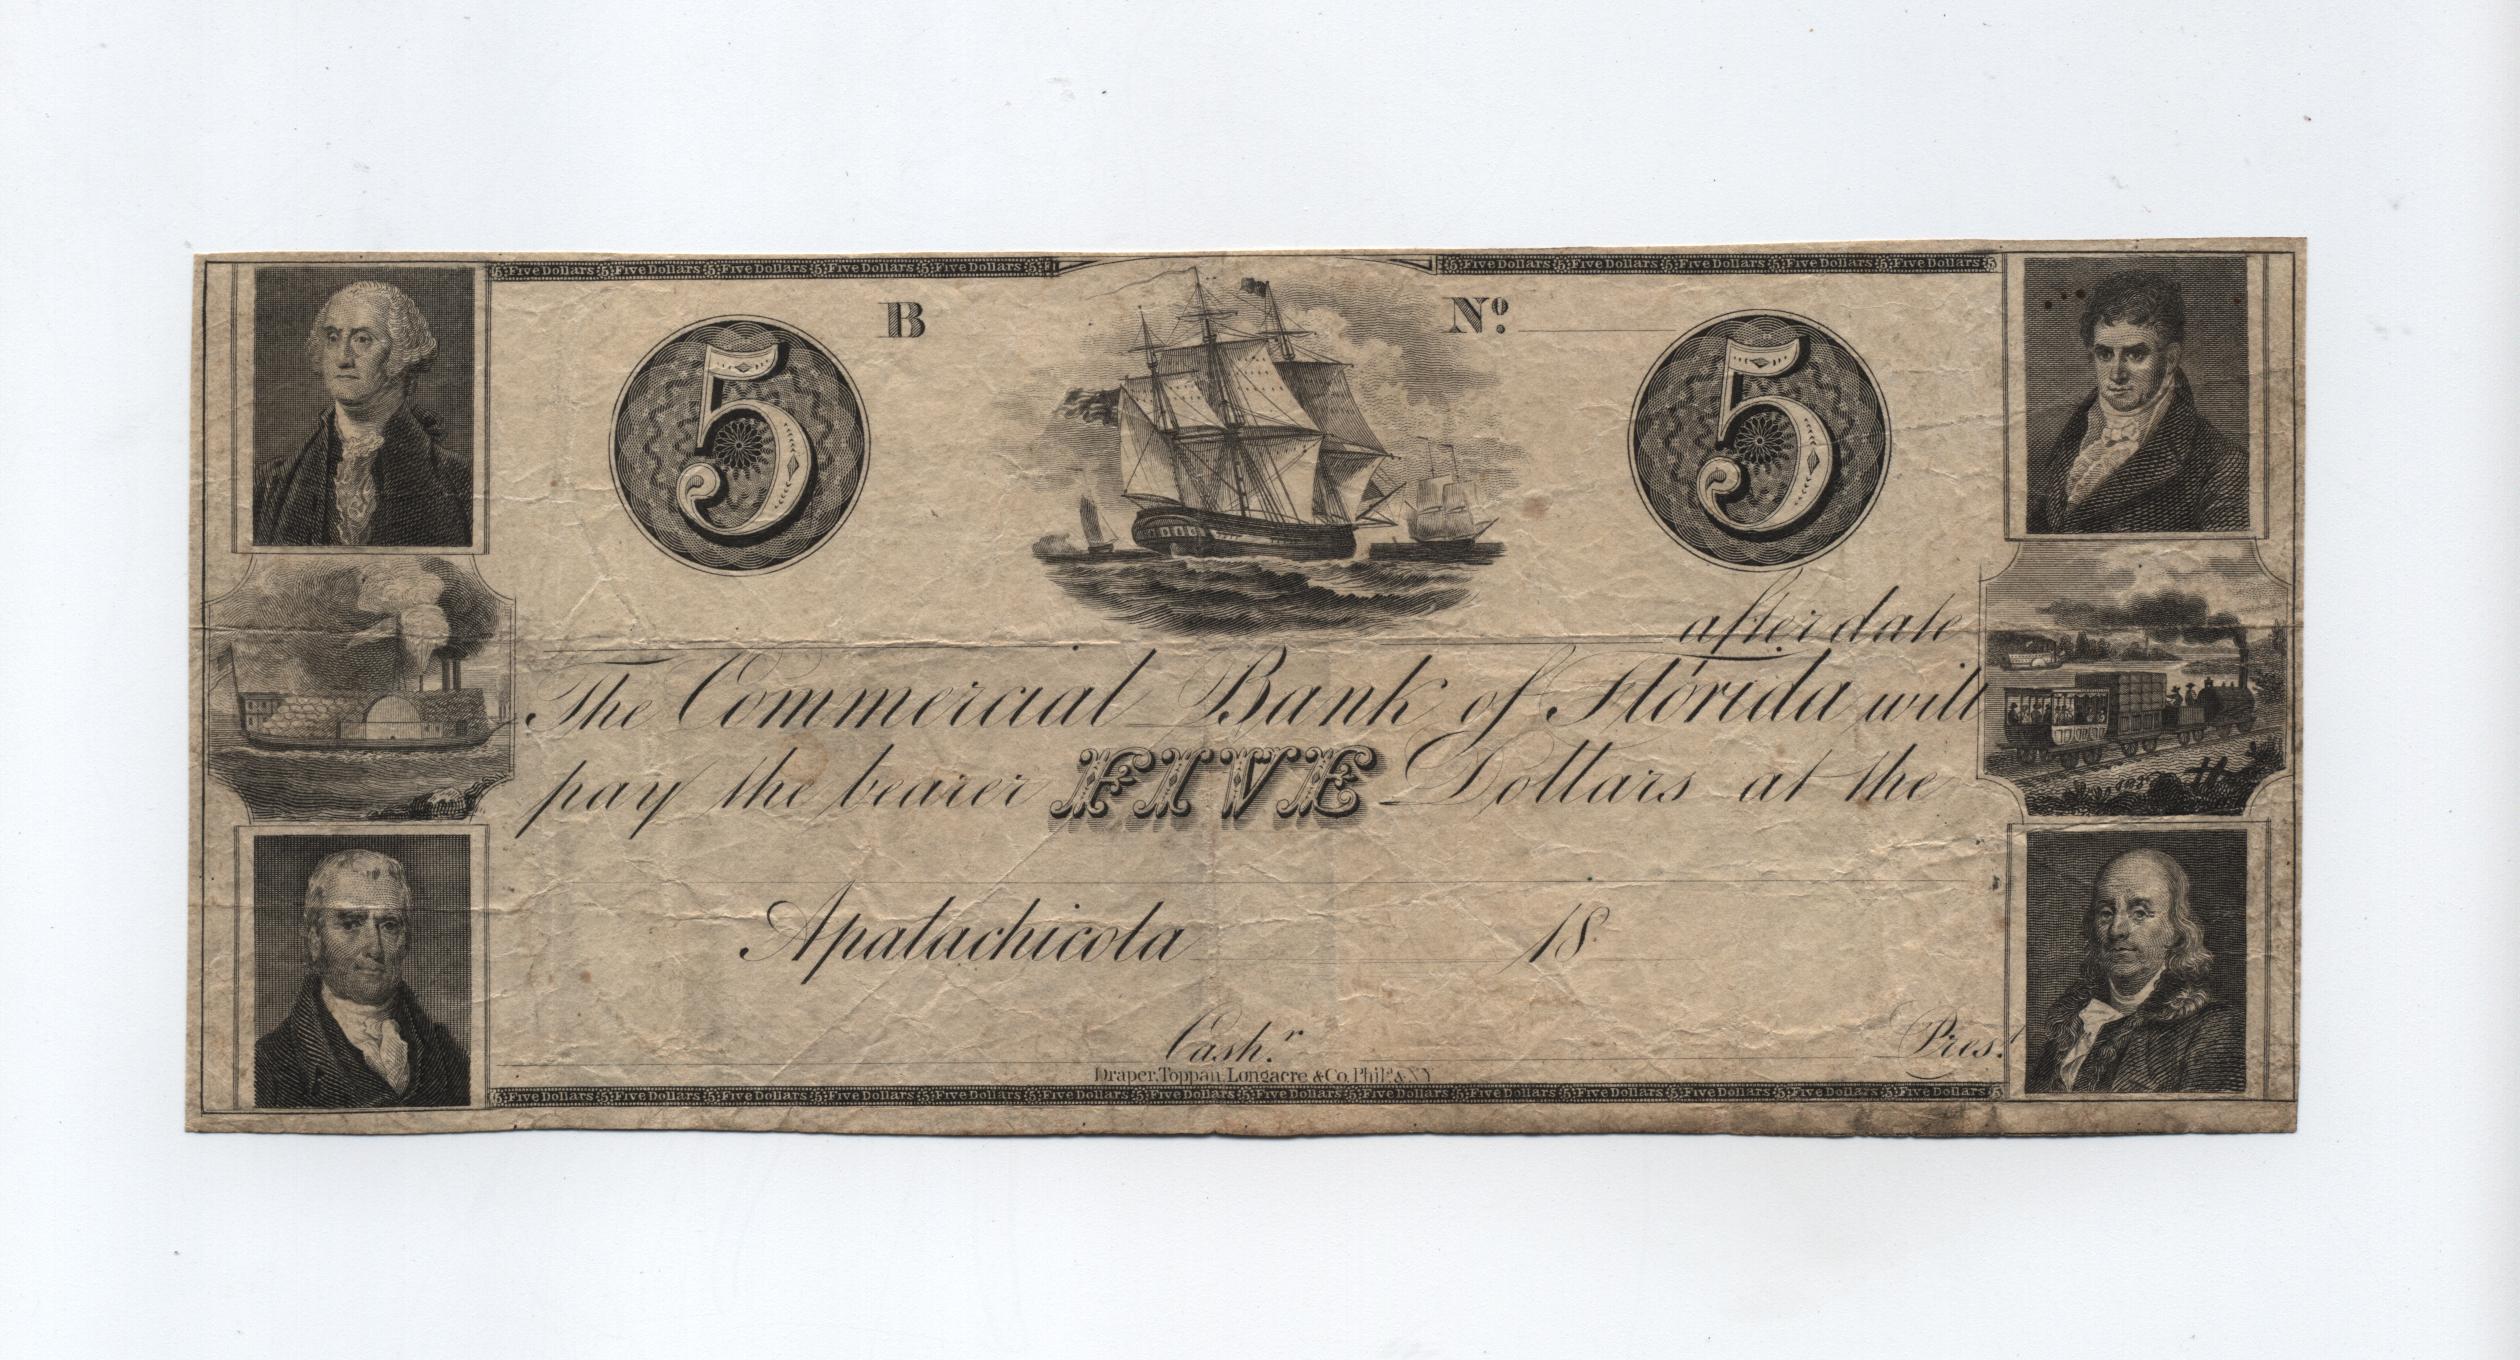 5 Five Dollars 5 Five Dollars 5 Five Dollars 5 Five Dollars 5 Five Dollars 5
5 Five Dollars 5 Five Dollars 5 Five Dollars 5 Five Dollars 5 Five Dollars 5
B
Nº
5
5
after date
The Commercial Bank of Florida will
pay the bearer FIVE Dollars at the
Apalachicola 18
Cash.r Pres.t
Draper, Toppan, Longacre & Co. Phila. & N.Y.
5 Five Dollars 5 Five Dollars 5 Five Dollars 5 Five Dollars 5 Five Dollars 5 Five Dollars 5 Five Dollars 5 Five Dollars 5 Five Dollars 5 Five Dollars 5 Five Dollars 5 Five Dollars 5 Five Dollars 5 Five Dollars 5